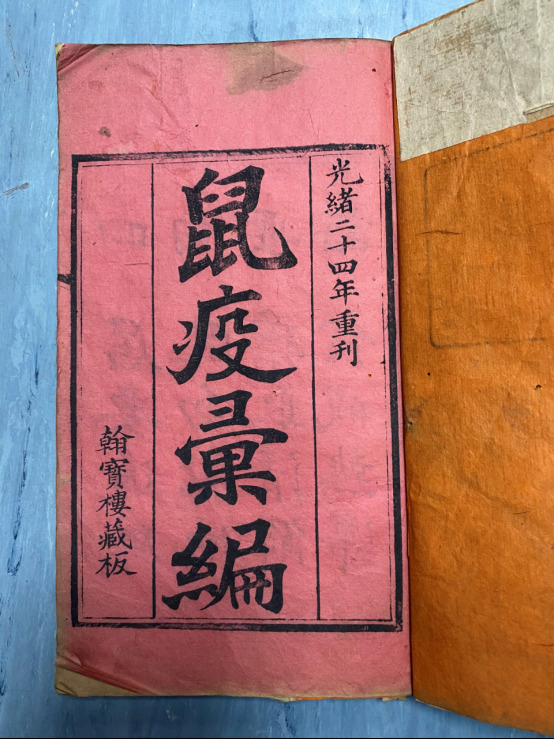 光緒二十四年重刊
鼠疫彙編
翰寶樓藏板